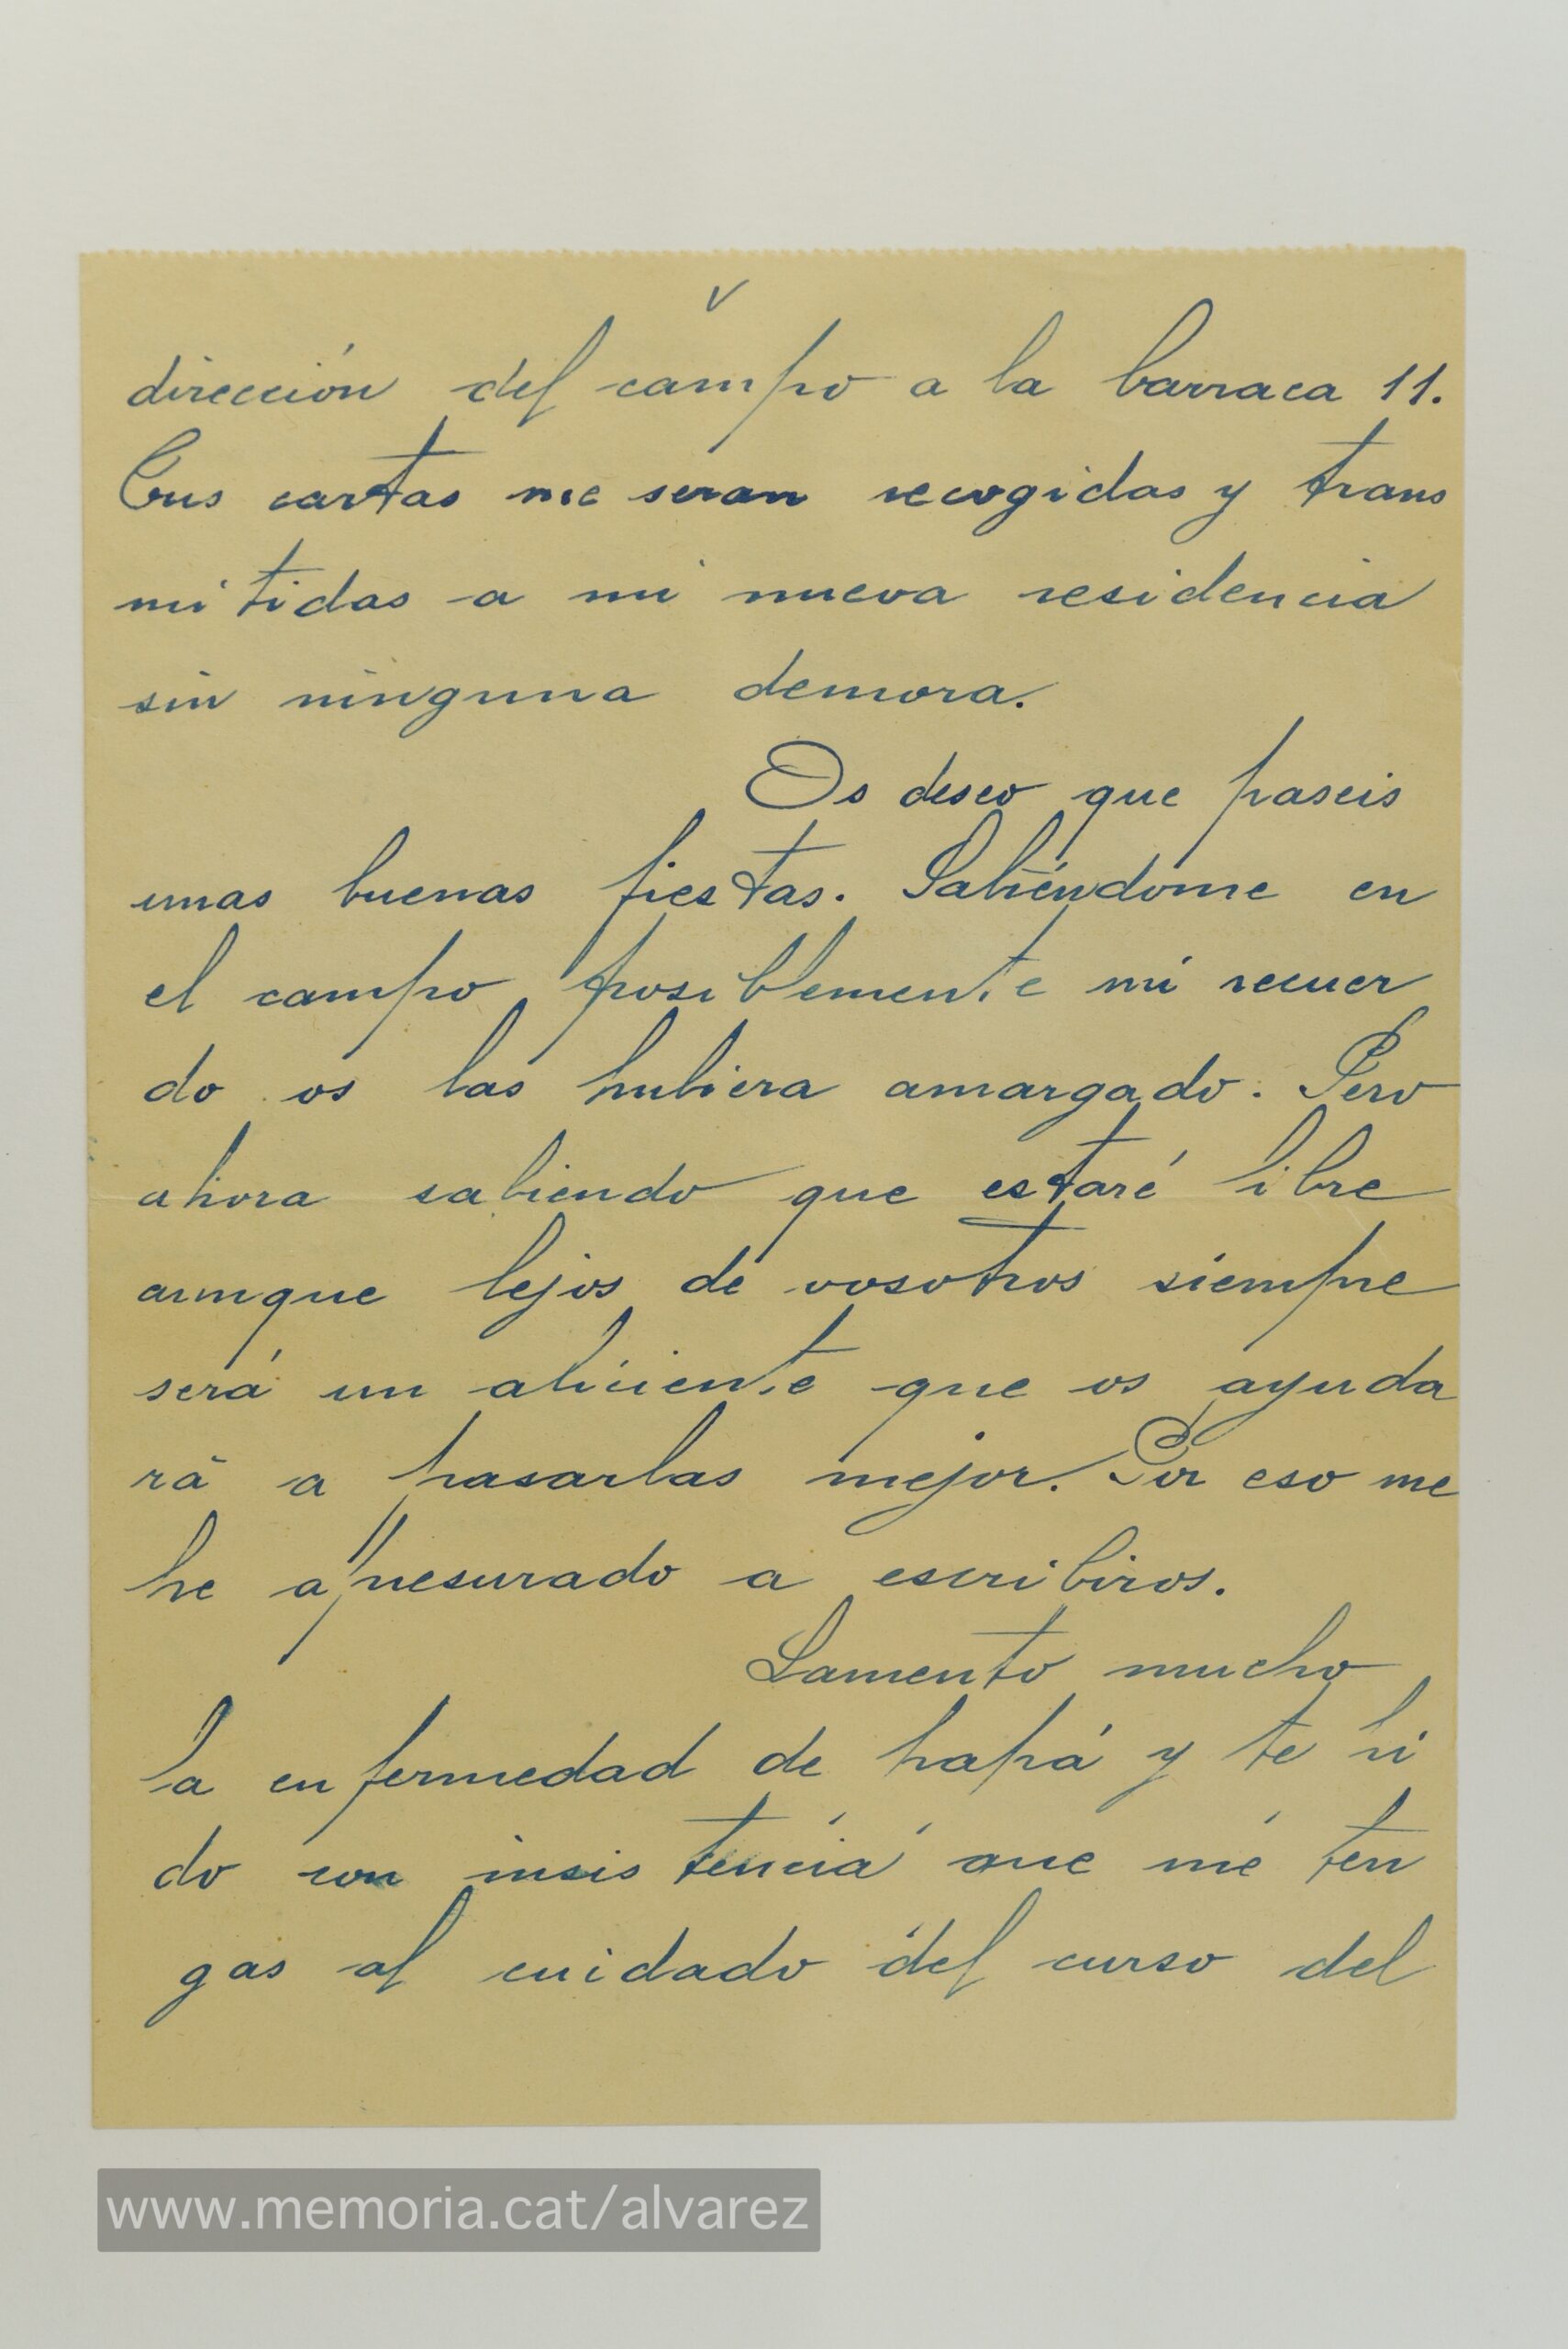 V
dirección del campo a la barraca 11.
Tus cartas me seran recogidas y trans
mitidas a mi nueva residencia
sin ninguna demora.
Os deseo que paseis
unas buenas fiestas. Sabiéndome en
el campo posiblemente mi recuer
do os las hubiera amargado. Pero
ahora sabiendo que estaré libre
aunque lejos de vosotros siempre
será un aliciente que os ayuda
rá a pasarlas mejor. Por eso me
he apresurado a escribiros.
Lamento mucho
la enfermedad de papá y te pi
do con insistencia que me ten
gas al cuidado del curso del
www.memoria.cat/alvarez